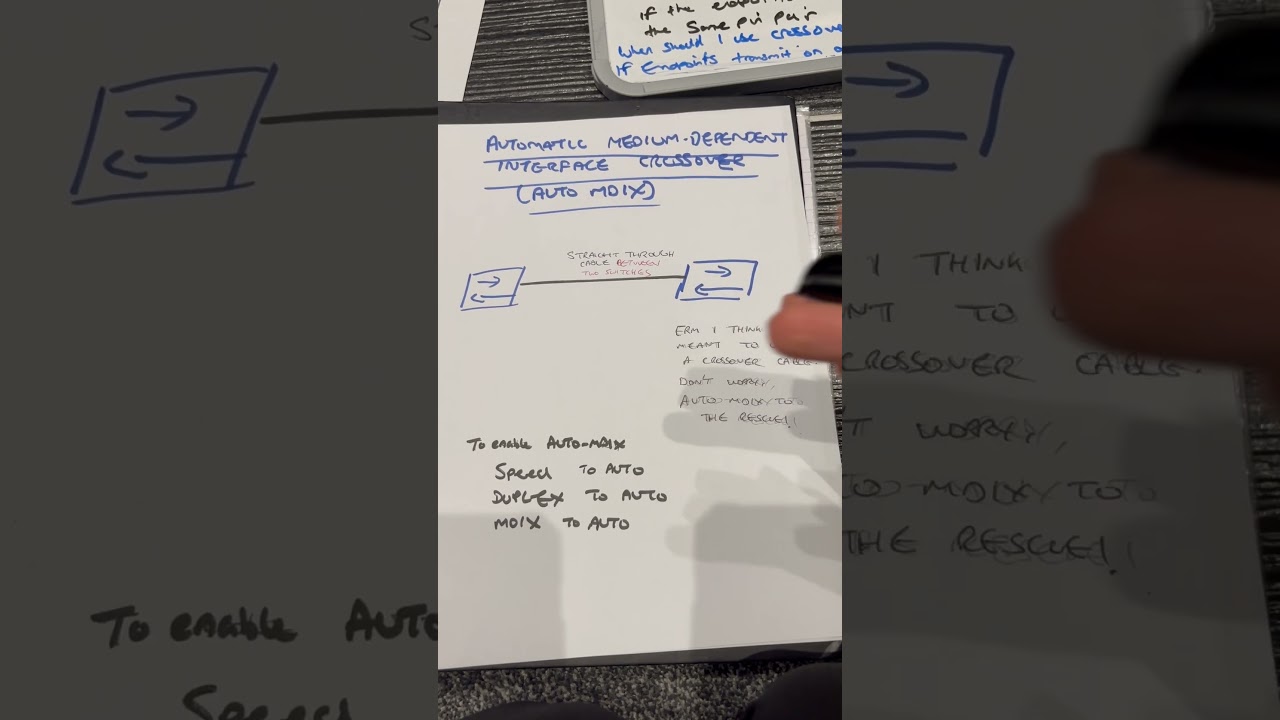 if the
the same pin pair
When should I use crossove
if Endpoints transmit on
AUTOMATIC MEDIUM-DEPENDENT
INTERFACE CROSSOVER
(AUTO MDIX)
STRAIGHT THROUGH
CABLE BETWEEN
TWO SWITCHES
ERM I THINK
MEANT TO
A CROSSOVER CABLE.
DON'T WORRY,
AUTO-MDIX TO
THE RESCUE!!
To enable AUTO-MDIX
Speed TO AUTO
DUPLEX TO AUTO
MDIX TO AUTO